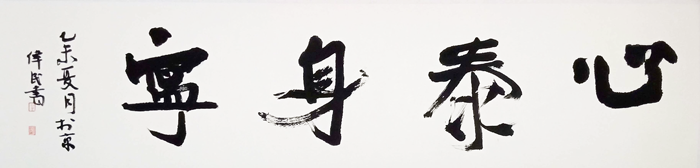 心泰身寧
乙未夏月於京
偉民書